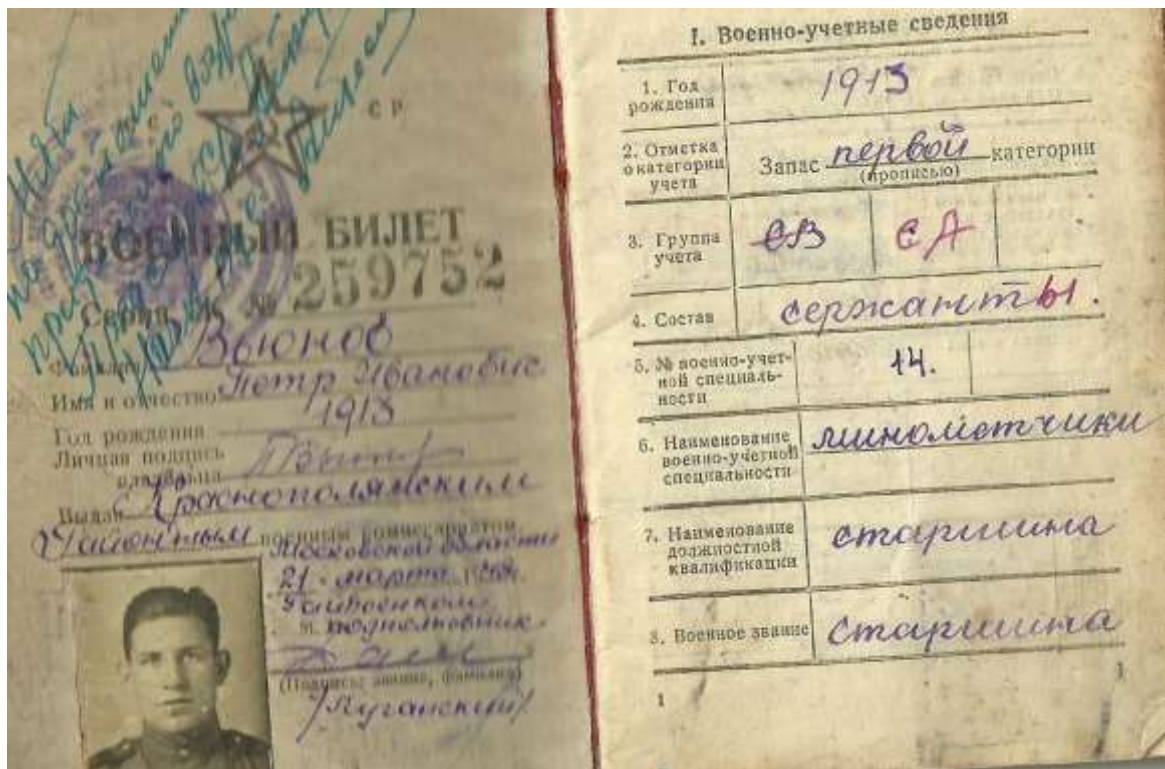 С С Р
ВОЕННЫЙ БИЛЕТ
Серия № 259752
Фамилия Вьюнов
Имя и отчество Петр Иванович
Год рождения 1913
Личная подпись
владельца
Выдан Краснополянским
Районным военным комиссариатом
Московской области
21 марта
Райвоенком
подполковник
(Подпись, звание, фамилия)
I. Военно-учетные сведения
1. Год рождения 1913
2. Отметка о категории учета Запас первой категории
(прописью)
3. Группа учета СВ СА
4. Состав сержанты.
5. № военно-учетной специальности 14.
6. Наименование военно-учетной специальности минометчики
7. Наименование должностной квалификации старшина
8. Военное звание Старшина
1